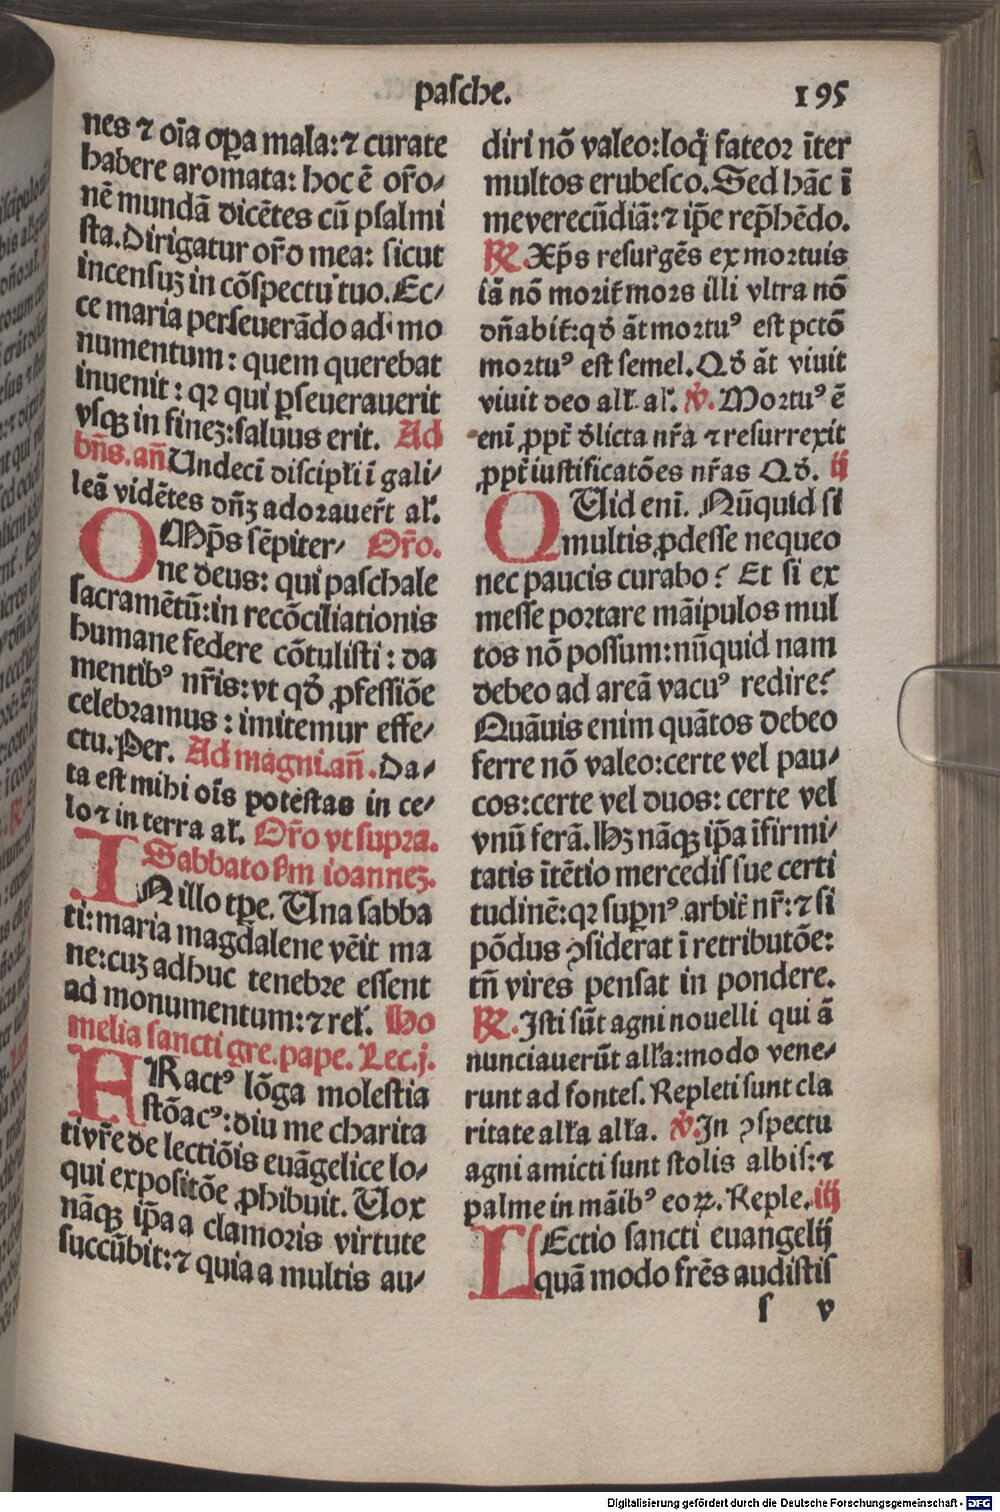 pasche. 195
nes ⁊ oīa oꝑa mala: ⁊ curate
habere aromata: hoc ē or̄o-
nē mundā dicētes cū psalmi
sta. Dirigatur or̄o mea: sicut
incensuꝫ in cōspectu tuo. Ec-
ce maria perseuerādo ad mo
numentum: quem querebat
inuenit: qꝛ qui ꝑseuerauerit
vsqꝫ in fineꝫ: saluus erit. Ad
bn̄s. an̄ Undeci discipl̄i ī gali-
leā vidētes dn̄ꝫ adorauer̄t al̄.
OMp̄s sēpiter- Or̄o.
ne deus: qui paschale
sacramētū: in recōciliationis
humane federe cōtulisti: da
mentibꝰ nr̄is: vt qď ꝓfessiōe
celebramus: imitemur effe-
ctu. Per. Ad magni. an̄. Da-
ta est mihi oīs potestas in ce-
lo ⁊ in terra al̄. Or̄o vt supra.
Sabbato ẜm ioanneꝫ.
IN illo tꝑe. Una sabba
ti: maria magdalene vēit ma
ne: cuꝫ adhuc tenebre essent
ad monumentum: ⁊ rel̄. Ho
melia sancti gre. pape. Lec. j.
FRactꝰ lōga molestia
stōacꝰ: diu me charita
ti vr̄e de lectiōis euāgelice lo-
qui expositōe ꝓhibuit. Uox
nāqꝫ ip̄a a clamoris virtute
succūbit: ⁊ quia a multis au-
diri nō valeo: loq̄ fateor īter
multos erubesco. Sed hāc ī
me verecūdiā: ⁊ ip̄e rep̄hēdo.
℟. Xp̄s resurgēs ex mortuis
iā nō morit̄ mors illi vltra nō
dn̄abit̄: qď āt mortuꝰ est pctō
mortuꝰ est semel. Qď āt viuit
viuit deo all̄. al̄. ℣. Mortuꝰ ē
enī ꝓpt̄ dlicta nr̄a ⁊ resurrexit
ꝓpt̄ iustificatōes nr̄as Qď. ij
QUid enī. Nūquid si
multis ꝓdesse nequeo
nec paucis curabo? Et si ex
messe portare māipulos mul
tos nō possum: nūquid nam
debeo ad areā vacuꝰ redire?
Quāuis enim quātos debeo
ferre nō valeo: certe vel pau-
cos: certe vel duos: certe vel
vnū ferā. Hꝫ nāqꝫ ip̄a īfirmi-
tatis ītētio mercedis sue certi
tudinē: qꝛ suꝑnꝰ arbit̄ nr̄: ⁊ si
pōdus ꝯsiderat ī retributōe:
tn̄ vires pensat in pondere.
℟. Isti sūt agni nouelli qui ā
nunciauerūt all̄a: modo vene-
runt ad fontes. Repleti sunt cla
ritate all̄a all̄a. ℣. In ꝯspectu
agni amicti sunt stolis albis: ⁊
palme in māibꝰ eoꝝ. Reple. iij
LEctio sancti euangelij
quā modo fr̄es audistis
s v
Digitalisierung gefördert durch die Deutsche Forschungsgemeinschaft - DFG